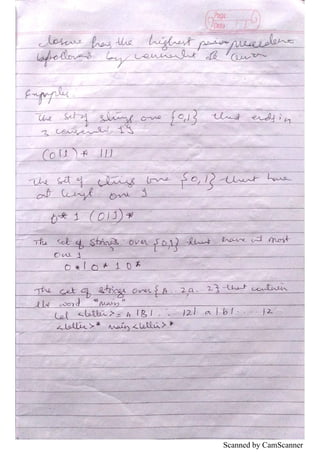 Page
Date
closure has the highest precedence
followed by
Examples
The set of strings over {0,1} that ends in
3 consecutive 1's
(0|1)* 111
The set of strings over {0,1} that have
at least one 1
0* 1 (0|1)*
The set of strings over {0,1} that have at most
one 1
0* | 0* 1 0*
The set of strings over {A..Z,a..z} that contain
the word "main"
Let <letter> = A|B| ... |Z| a|b| ... |z
<letter>* main <letter>*
Scanned by CamScanner